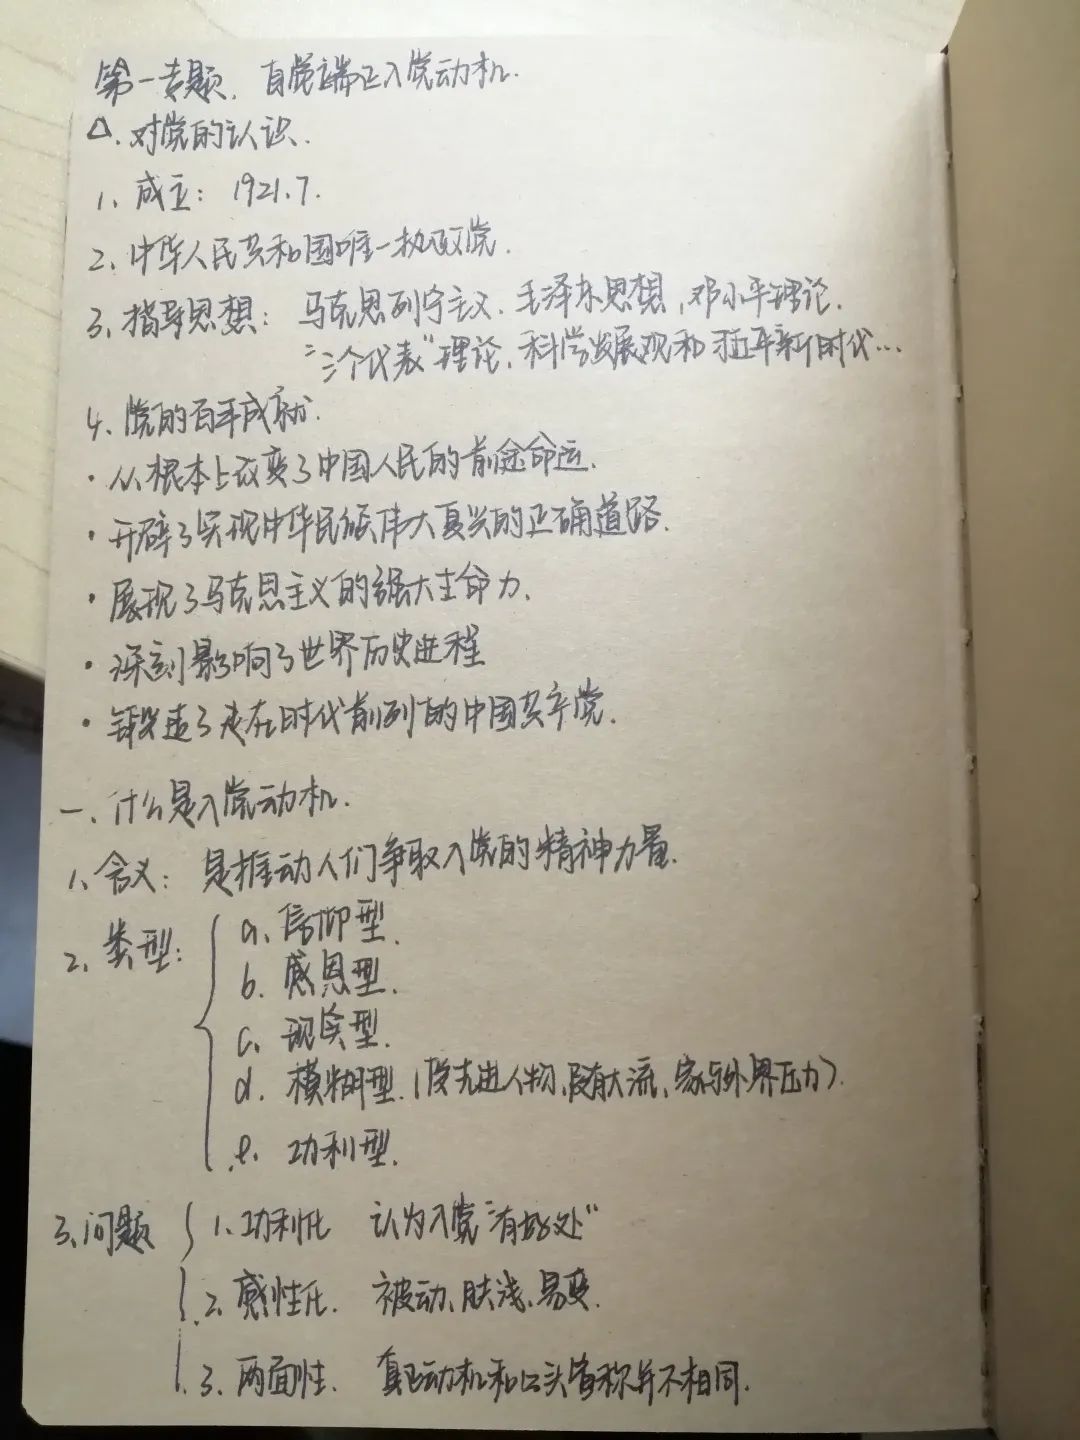 第一专题、自觉端正入党动机.
△.对党的认识.
1、成立：1921.7.
2、中华人民共和国唯一执政党.
3、指导思想：马克思列宁主义、毛泽东思想，邓小平理论.
"三个代表"理论，科学发展观和习近平新时代…
4、党的百年成就.
·从根本上改变了中国人民的前途命运.
·开辟了实现中华民族伟大复兴的正确道路.
·展现了马克思主义的强大生命力.
·深刻影响了世界历史进程
·锻造了走在时代前列的中国共产党.
一、什么是入党动机.
1、含义：是推动人们争取入党的精神力量.
2、类型：
a、信仰型.
b.感恩型.
c、现实型.
d.模糊型.(先进人物、大流、外界压力).
e.功利型.
3、问题
1.功利化 认为入党"有好处"
2.感性化. 被动、肤浅、易变.
3.两面性. 真正动机和口头宣称并不相同.